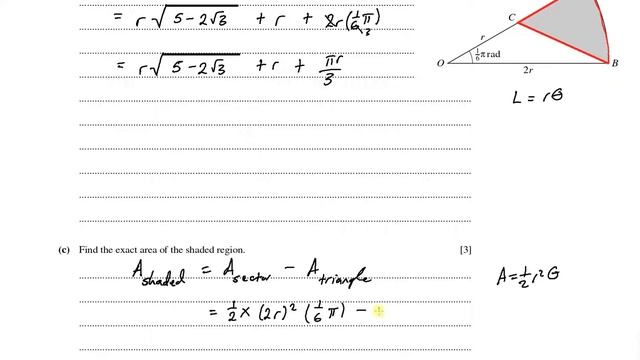 = r√(5 − 2√3) + r + 2r(1/6 π)3
= r√(5 − 2√3) + r + πr/3
C
r
1/6 π rad
O
2r
B
L = rθ
(c) Find the exact area of the shaded region. [3]
A shaded = A sector − A triangle
A = 1/2 r² θ
= 1/2 × (2r)² (1/6 π) −